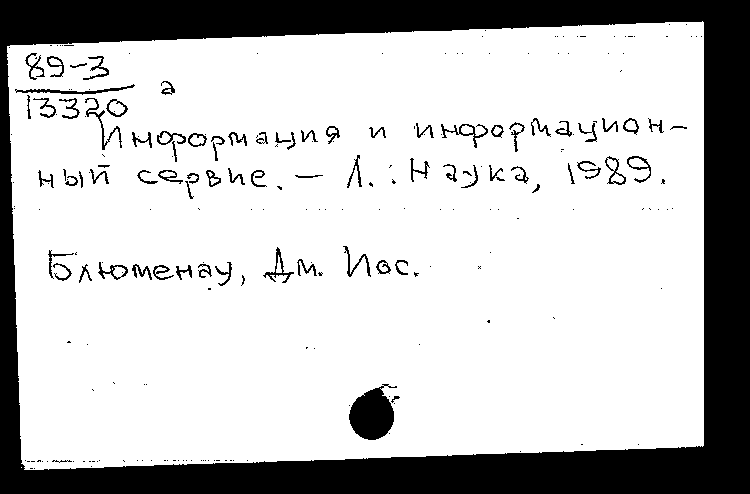 89-3
13320 а
Информация и информацион-
ный сервис. — Л.: Наука, 1989.
Блюменау, Дм. Иос.